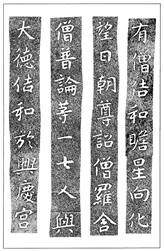 有僧佶和瞻星向化
望日朝尊詔僧羅含
僧普論等一七人與
大德佶和於興慶宮